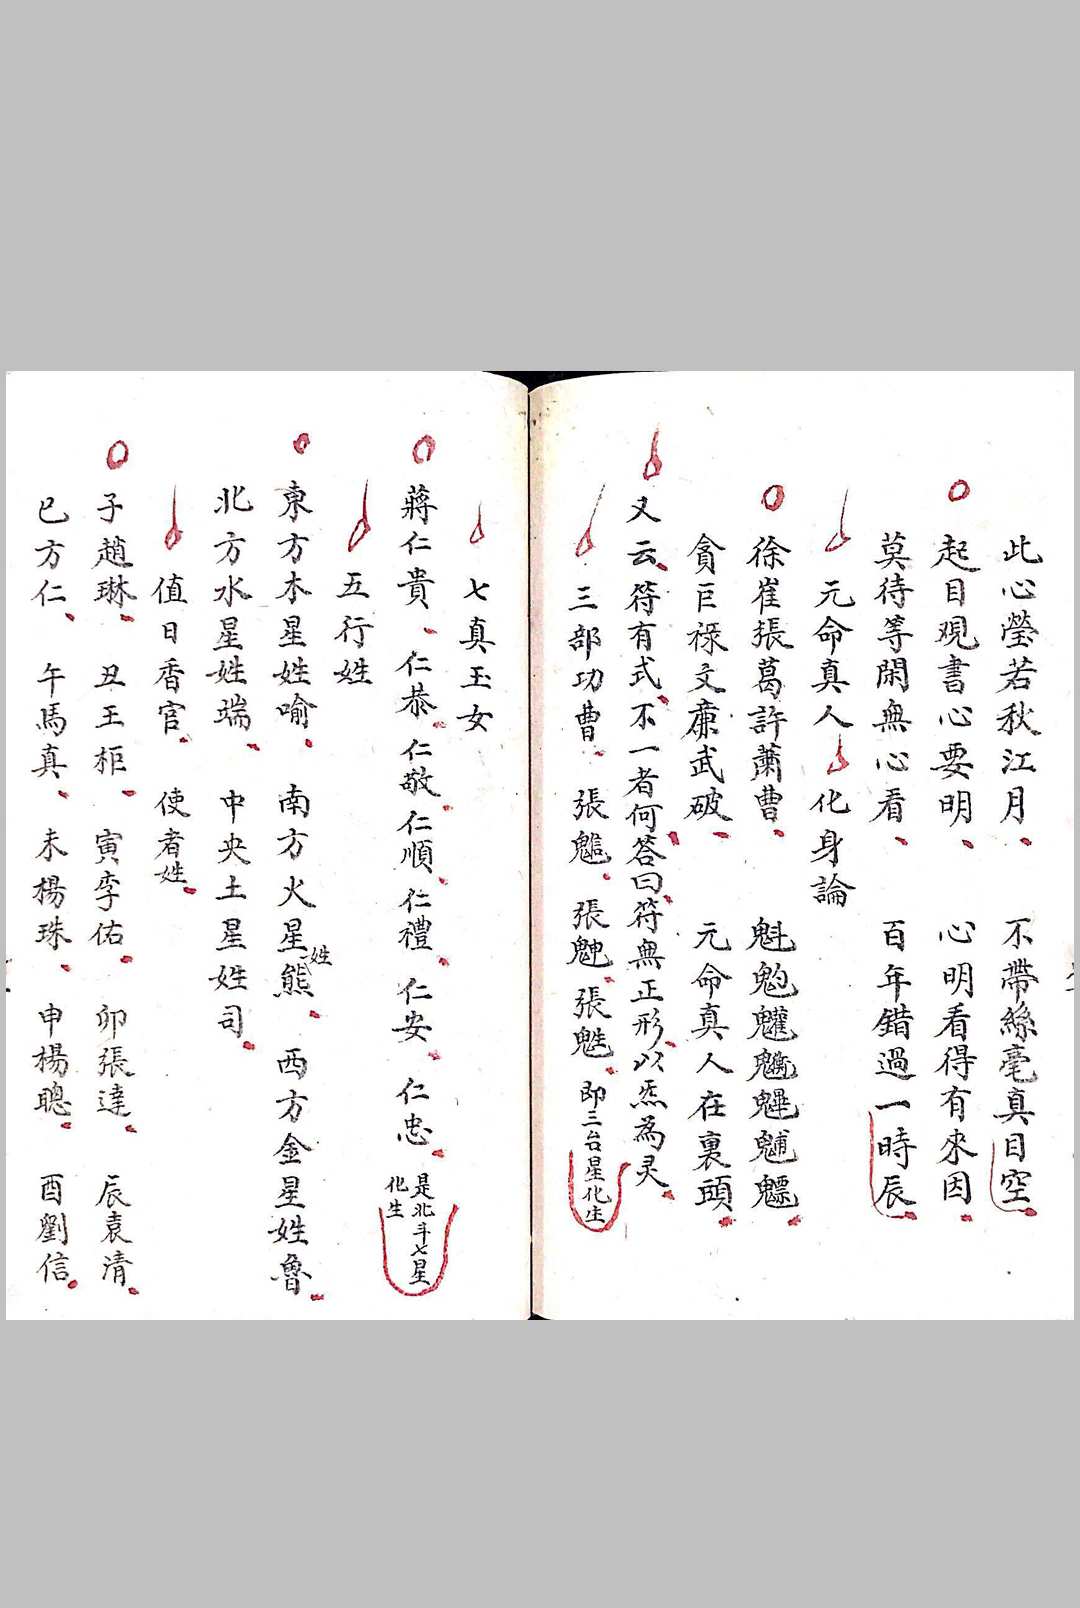 此心瑩若秋江月 不帶絲毫真目空
起目观書心要明 心明看得有來因
莫待等閑無心看 百年錯過一時辰
元命真人化身論
徐崔張葛許蕭曹 魁魀魓魒
貪巨禄文亷武破 元命真人在裏頭
又云符有式不一者何答曰符無正形以炁為灵
三部功曹 張 張 張 即三台星化生
七真玉女
蔣仁貴 仁恭 仁敬 仁順 仁禮 仁安 仁忠 是北斗七星化生
五行姓
東方木星姓喻 南方火星姓熊 西方金星姓魯
北方水星姓端 中央土星姓司
值日香官 使者姓
子趙琳 丑王柜 寅李佑 卯張達 辰袁清
巳方仁 午馬真 未楊珠 申楊聰 酉劉信